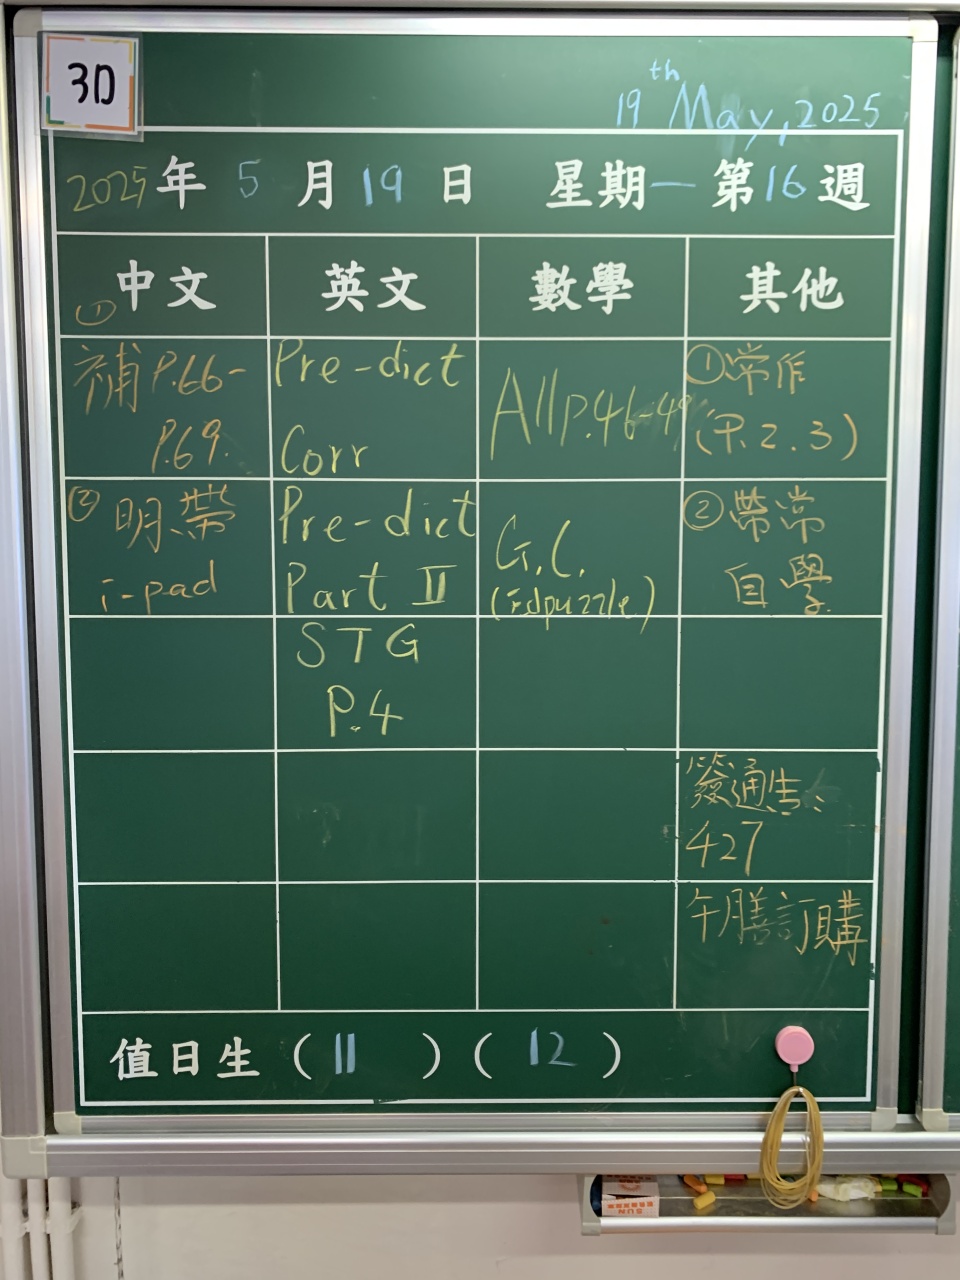 3D
19th May, 2025
2025年 5 月 19 日 星期一 第16週
中文 英文 數學 其他
① 補 P.66-
P.69.
Pre-dict
Corr
All p.46-49
①常作
(P.2.3)
② 明、帶
i-pad
Pre-dict
Part II
G.C.
(Edpuzzle.)
②帶常
自學
STG
P.4
簽通告:
427
午膳訂購
值日生 ( 11 ) ( 12 )
SUN